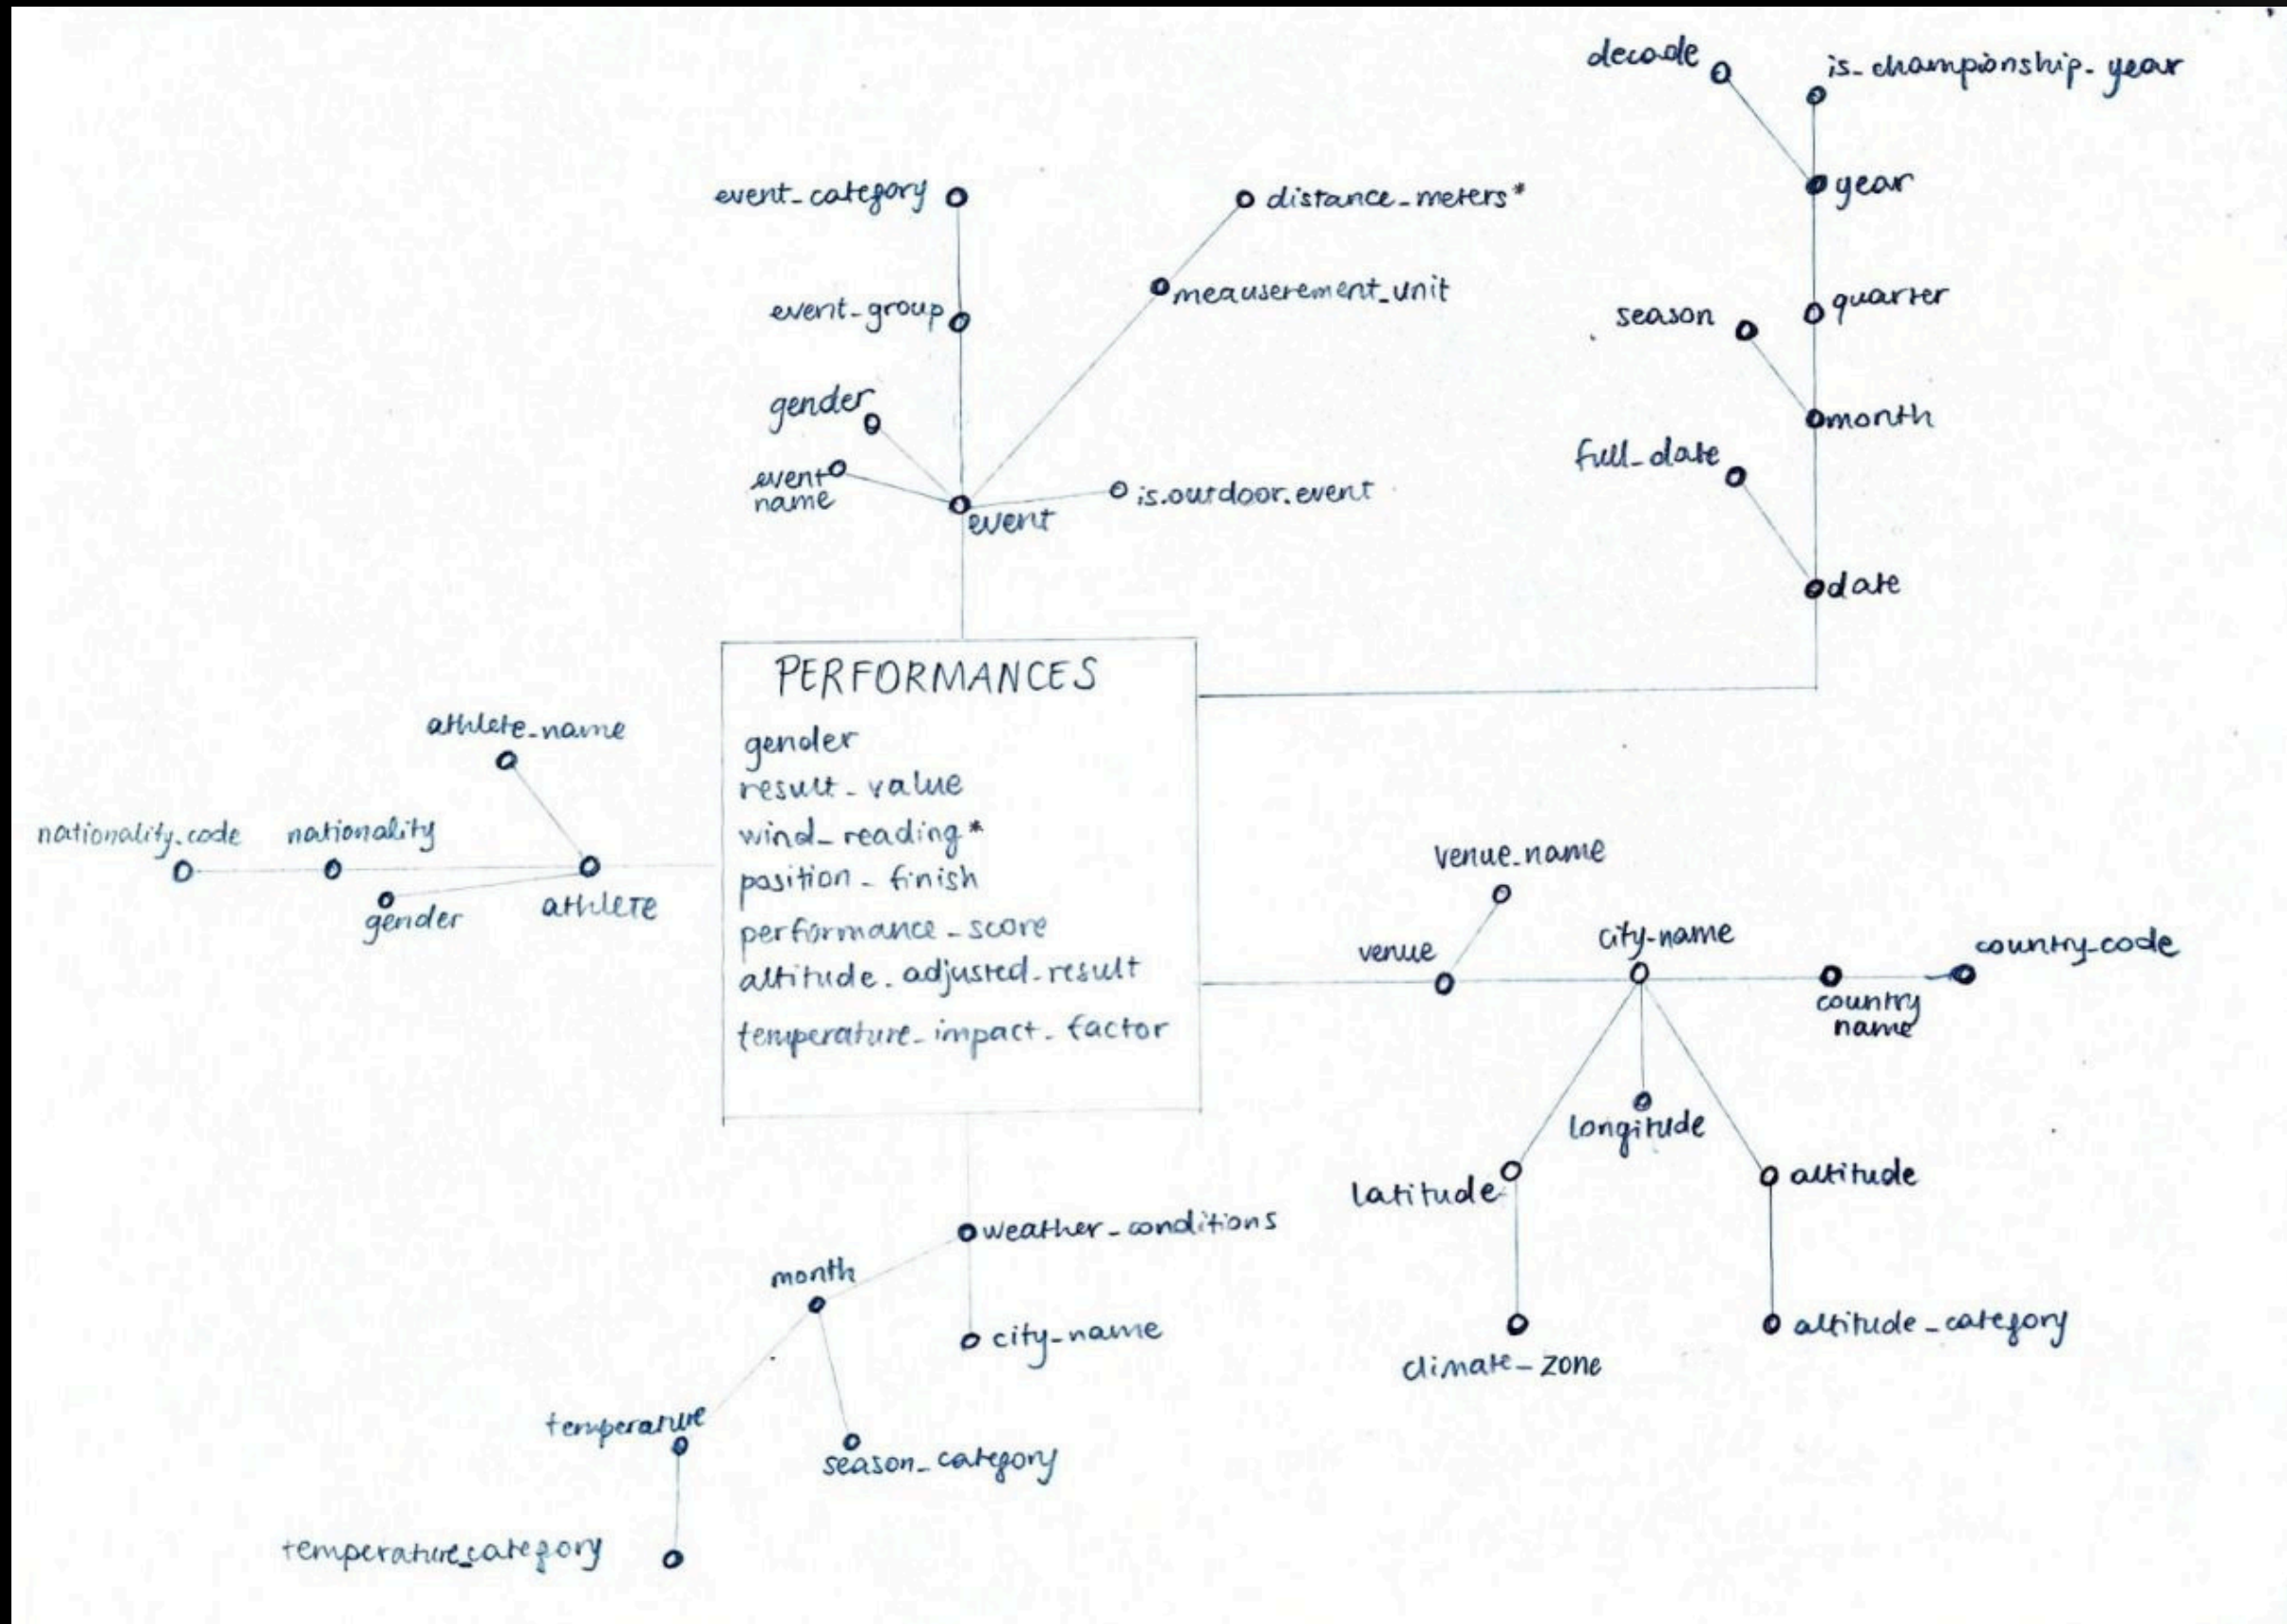 decade
is_championship_year
year
event_category
distance_meters*
meauserement_unit
quarter
season
event_group
gender
month
full_date
event
name
is.outdoor.event
event
date
PERFORMANCES
gender
result_value
wind_reading*
position_finish
performance_score
altitude_adjusted_result
temperature_impact_factor
athlete_name
nationality_code
nationality
gender
athlete
venue_name
venue
city-name
country_code
country
name
longitude
latitude
altitude
climate_zone
altitude_category
weather_conditions
month
city_name
temperature
season_category
temperature_category